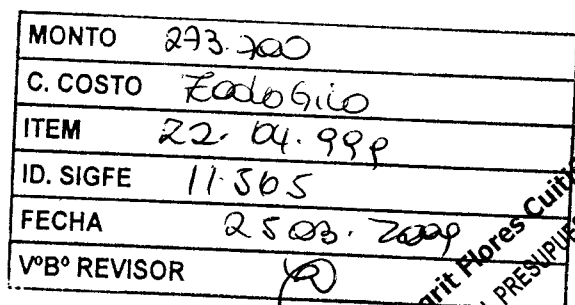 MONTO 273.700
C. COSTO Zoologico
ITEM 22. 04. 999
ID. SIGFE 11.565
FECHA 25 03. 2009
VºBº REVISOR
Flores